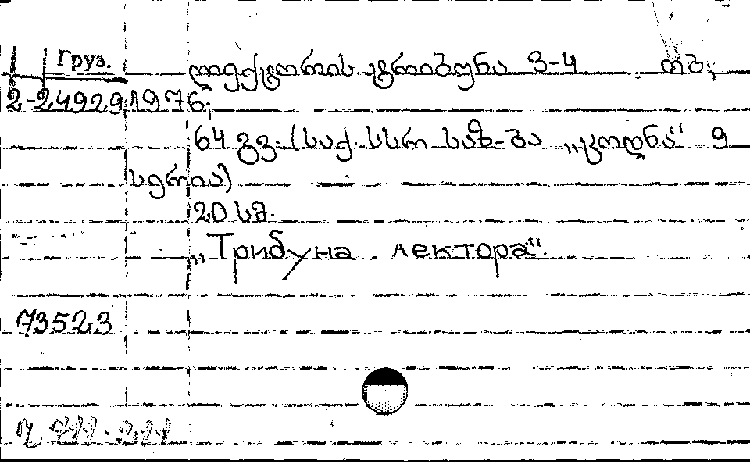 Груз. ლექტორის ტრიბუნა 3-4 თბ.,
2-24929 1976,
64 გვ. (საქ. სსრ საზ-ბა „ცოდნა“ 9
სერია)
20 სმ.
„Трибуна лектора“.
73523